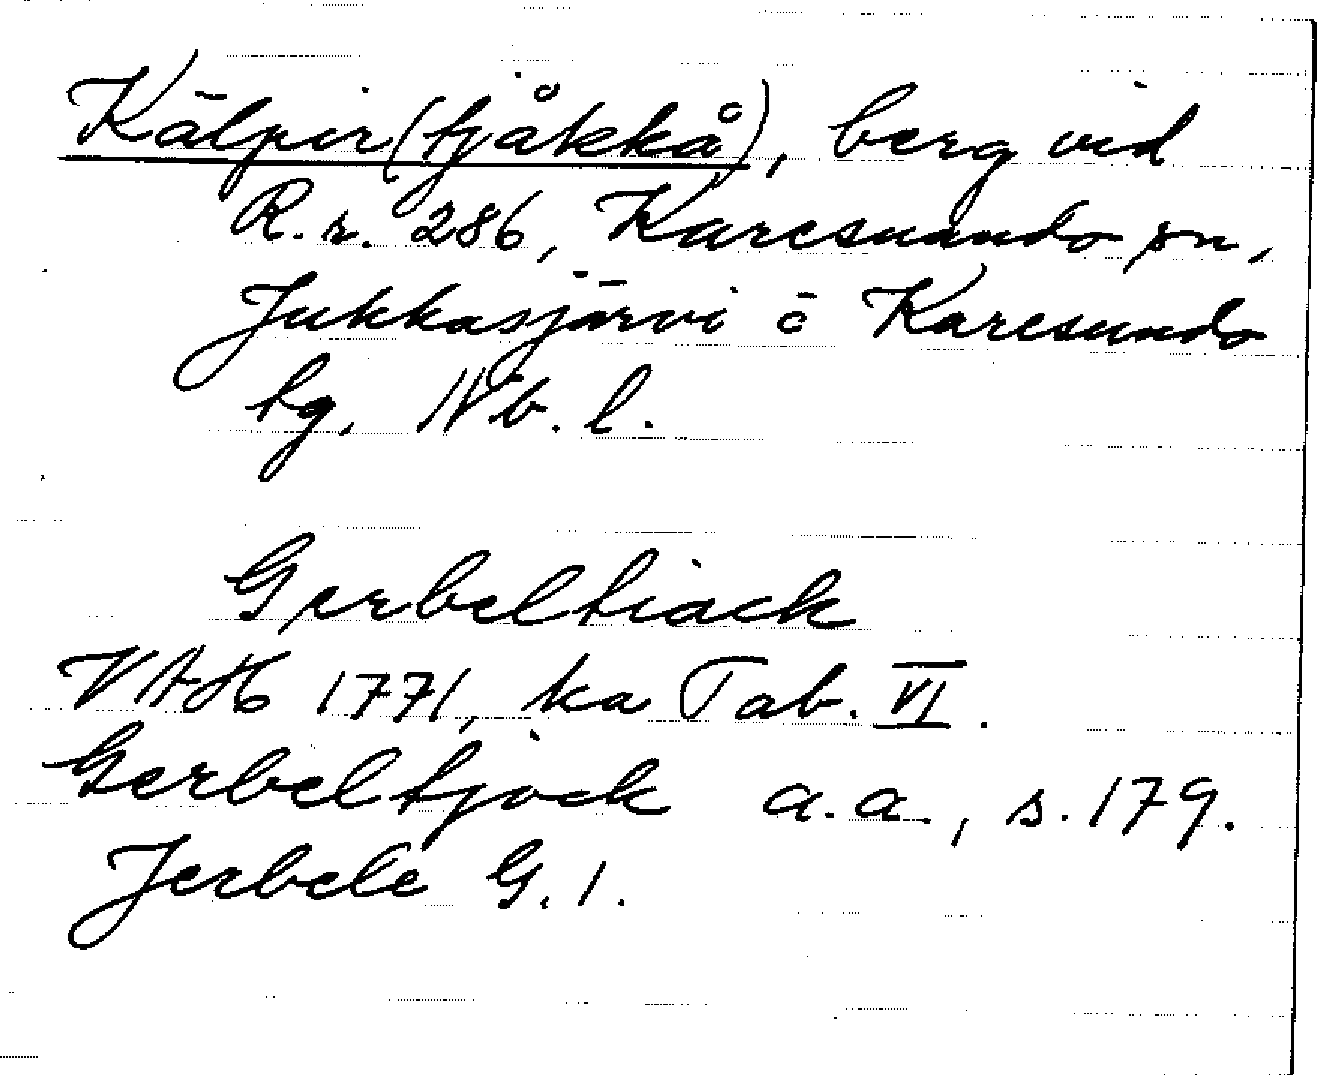 Kälpir(tjåkkå), berg vid
R.r. 286, Karesuando sn,
Jukkasjärvi o Karesuando
tg, Nb. l.
Gerbeltiack
VAH 1771, ka Tab. VI.
Gerbeltjock a.a., s. 179.
Jerbele G. 1.